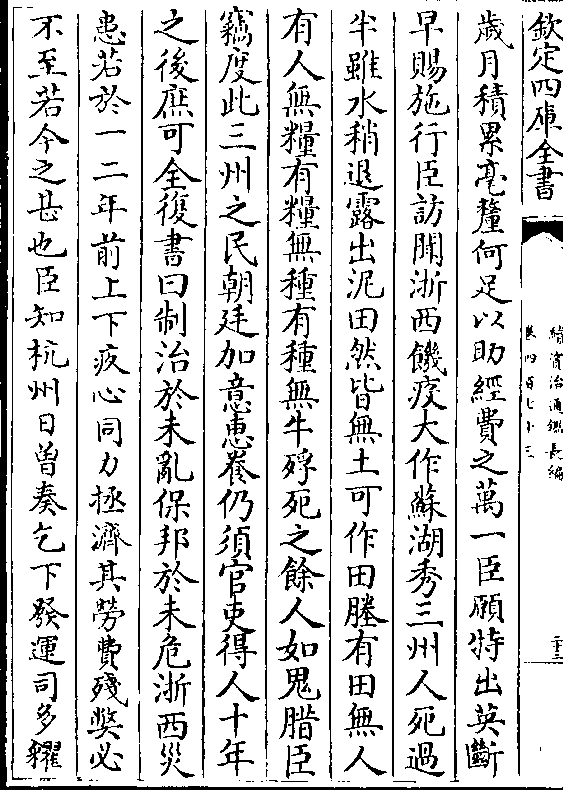 欽定四庫全書
續資治通鑑長編
卷四百七十三
二十三
歲月積累毫釐何足以助經費之萬一臣願特出英斷
早賜施行臣訪聞浙西饑疫大作蘇湖秀三州人死過
半雖水稍退露出泥田然皆無土可作田塍有田無人
有人無糧有糧無種有種無牛殍死之餘人如鬼腊臣
竊度此三州之民朝廷加意惠養仍須官吏得人十年
之後庶可全復書曰制治於未亂保邦於未危浙西災
患若於一二年前上下疚心同力拯濟其勞費殘弊必
不至若今之甚也臣知杭州日曽奏乞下發運司多糴